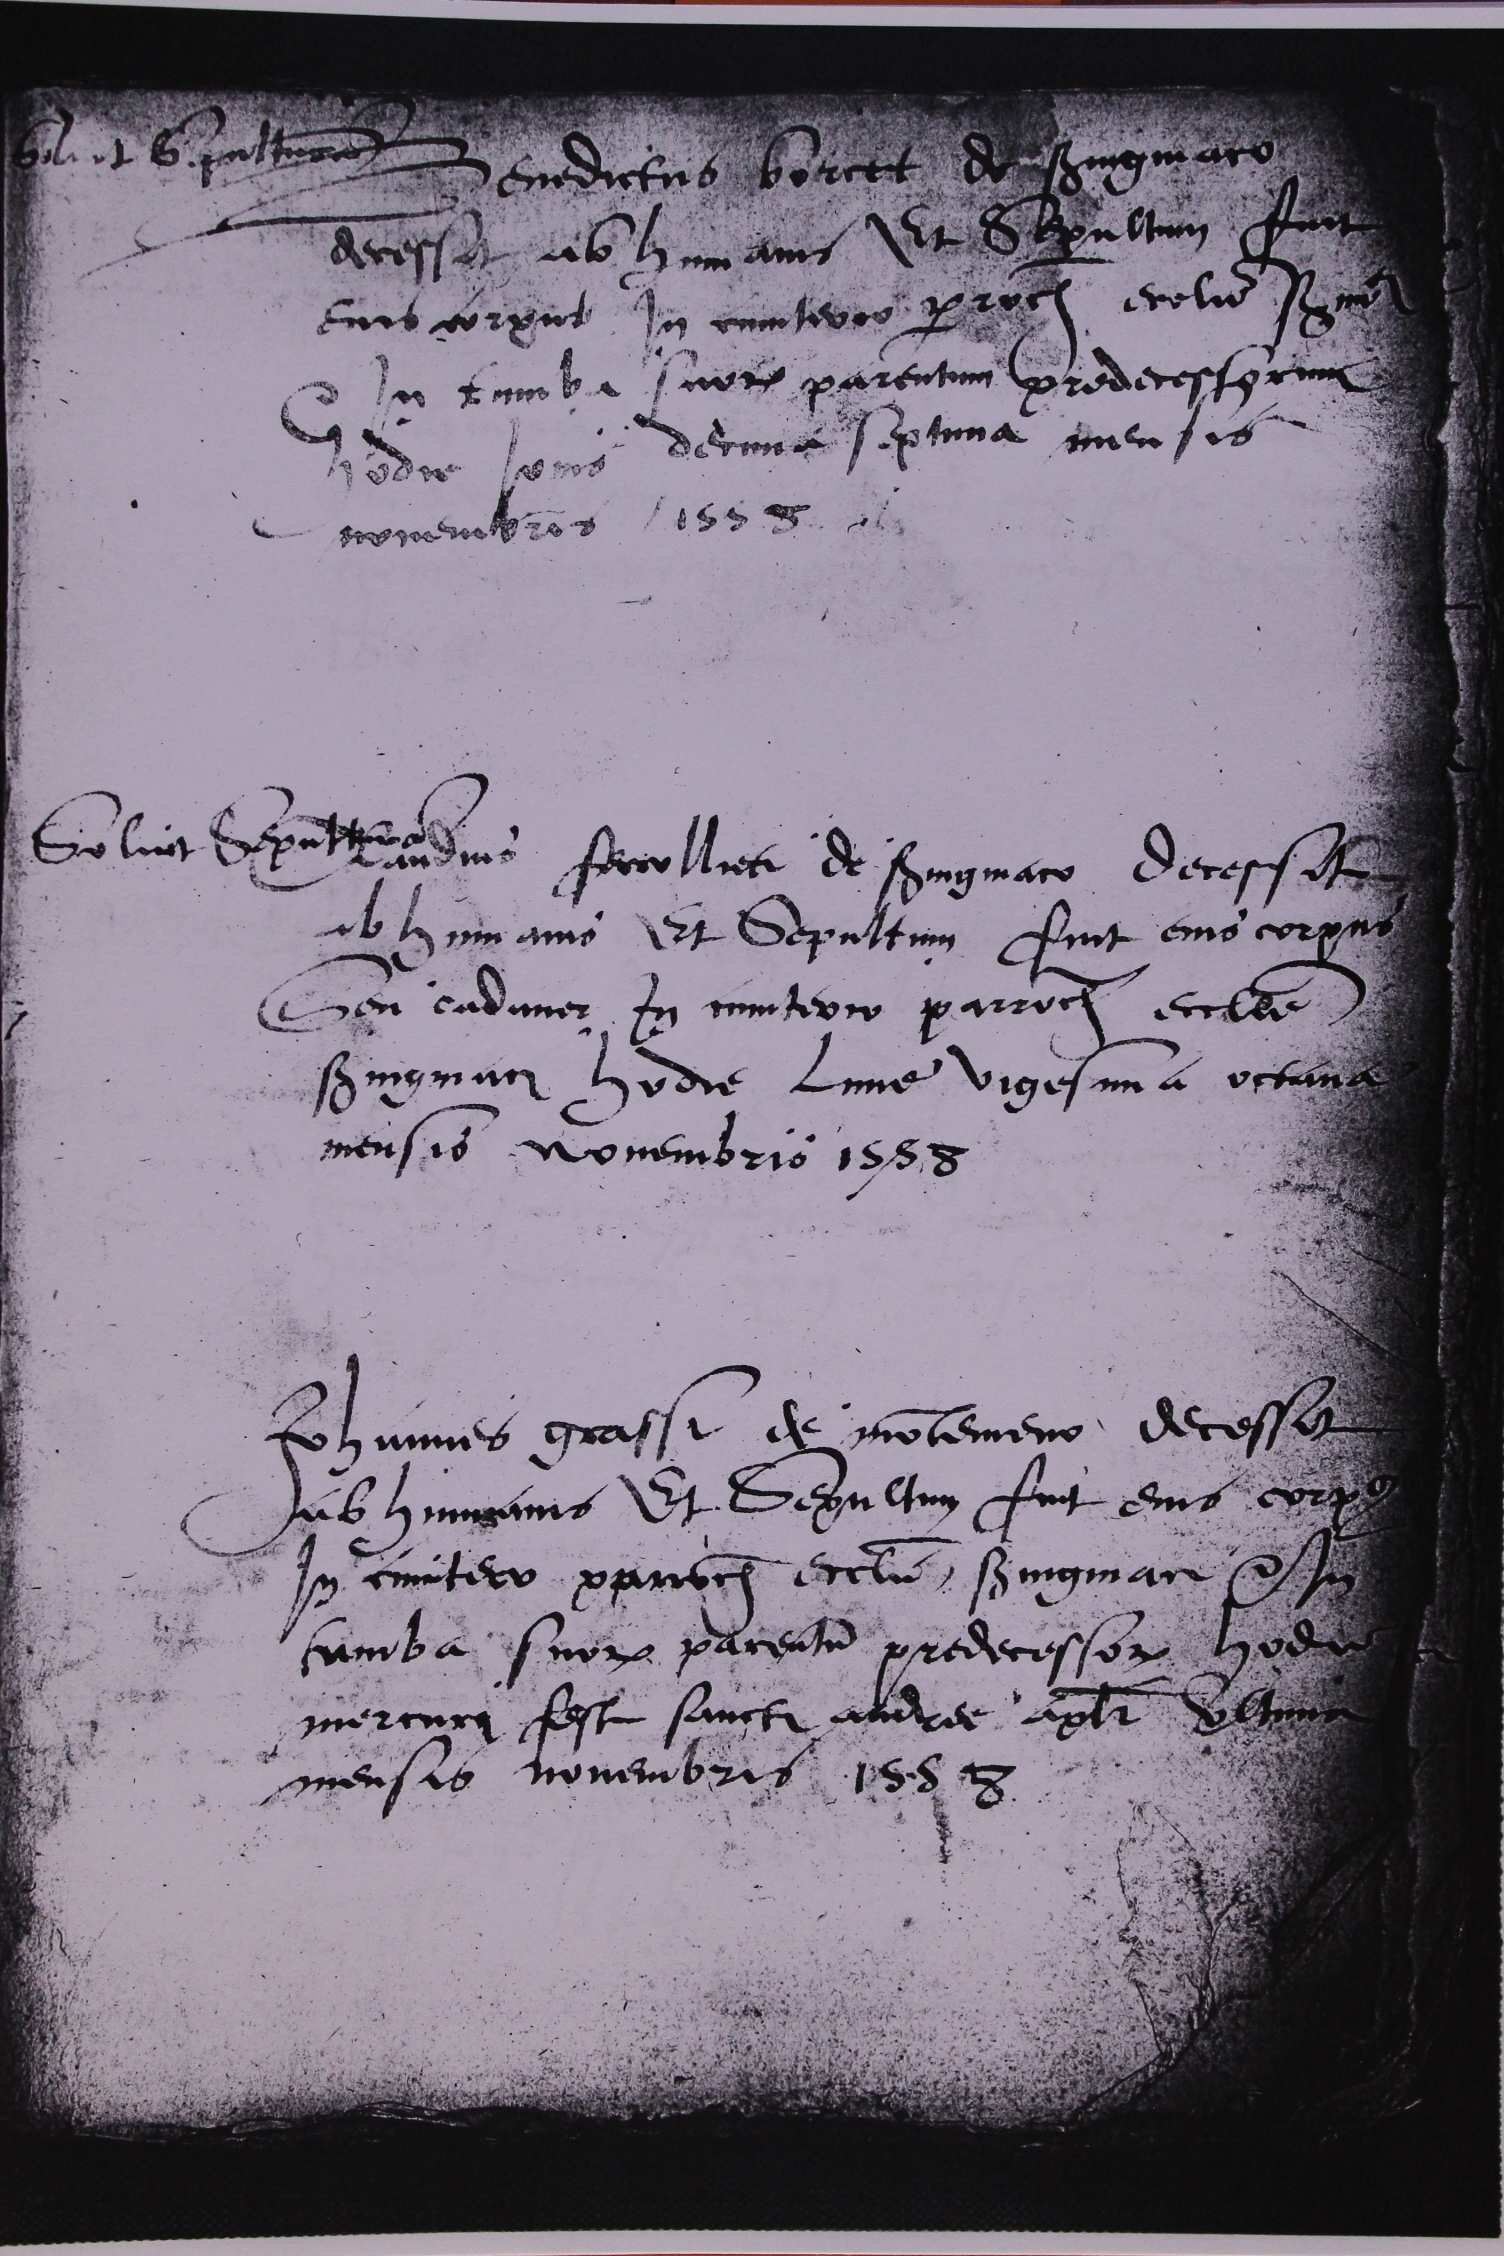 Soluit Sepulturam
Benedictus borcet de szingmaco
decessit ab humanis Et Sepultum fuit
eius corpus In cimiterio parroch ecclie
In tumba suor parentum predecessorum
hodie Jovis decima septima mensis
novembris 1558
Soluit Sepulturam
Claudius de szingmaco decessit
ab humanis Et Sepultum fuit eius corpus
Seu cadaver In cimiterio parroch ecclie
szingmaci hodie Lune vigesima octava
mensis Novembris 1558
Johannes grassi de decessit
ab humanis Et Sepultum fuit eius corp9
In cimiterio parroch ecclie szingmaci & In
tumba suor parentum predecessor hodie
mercurij festi sancti andree apli Ultima
mensis novembris 1558